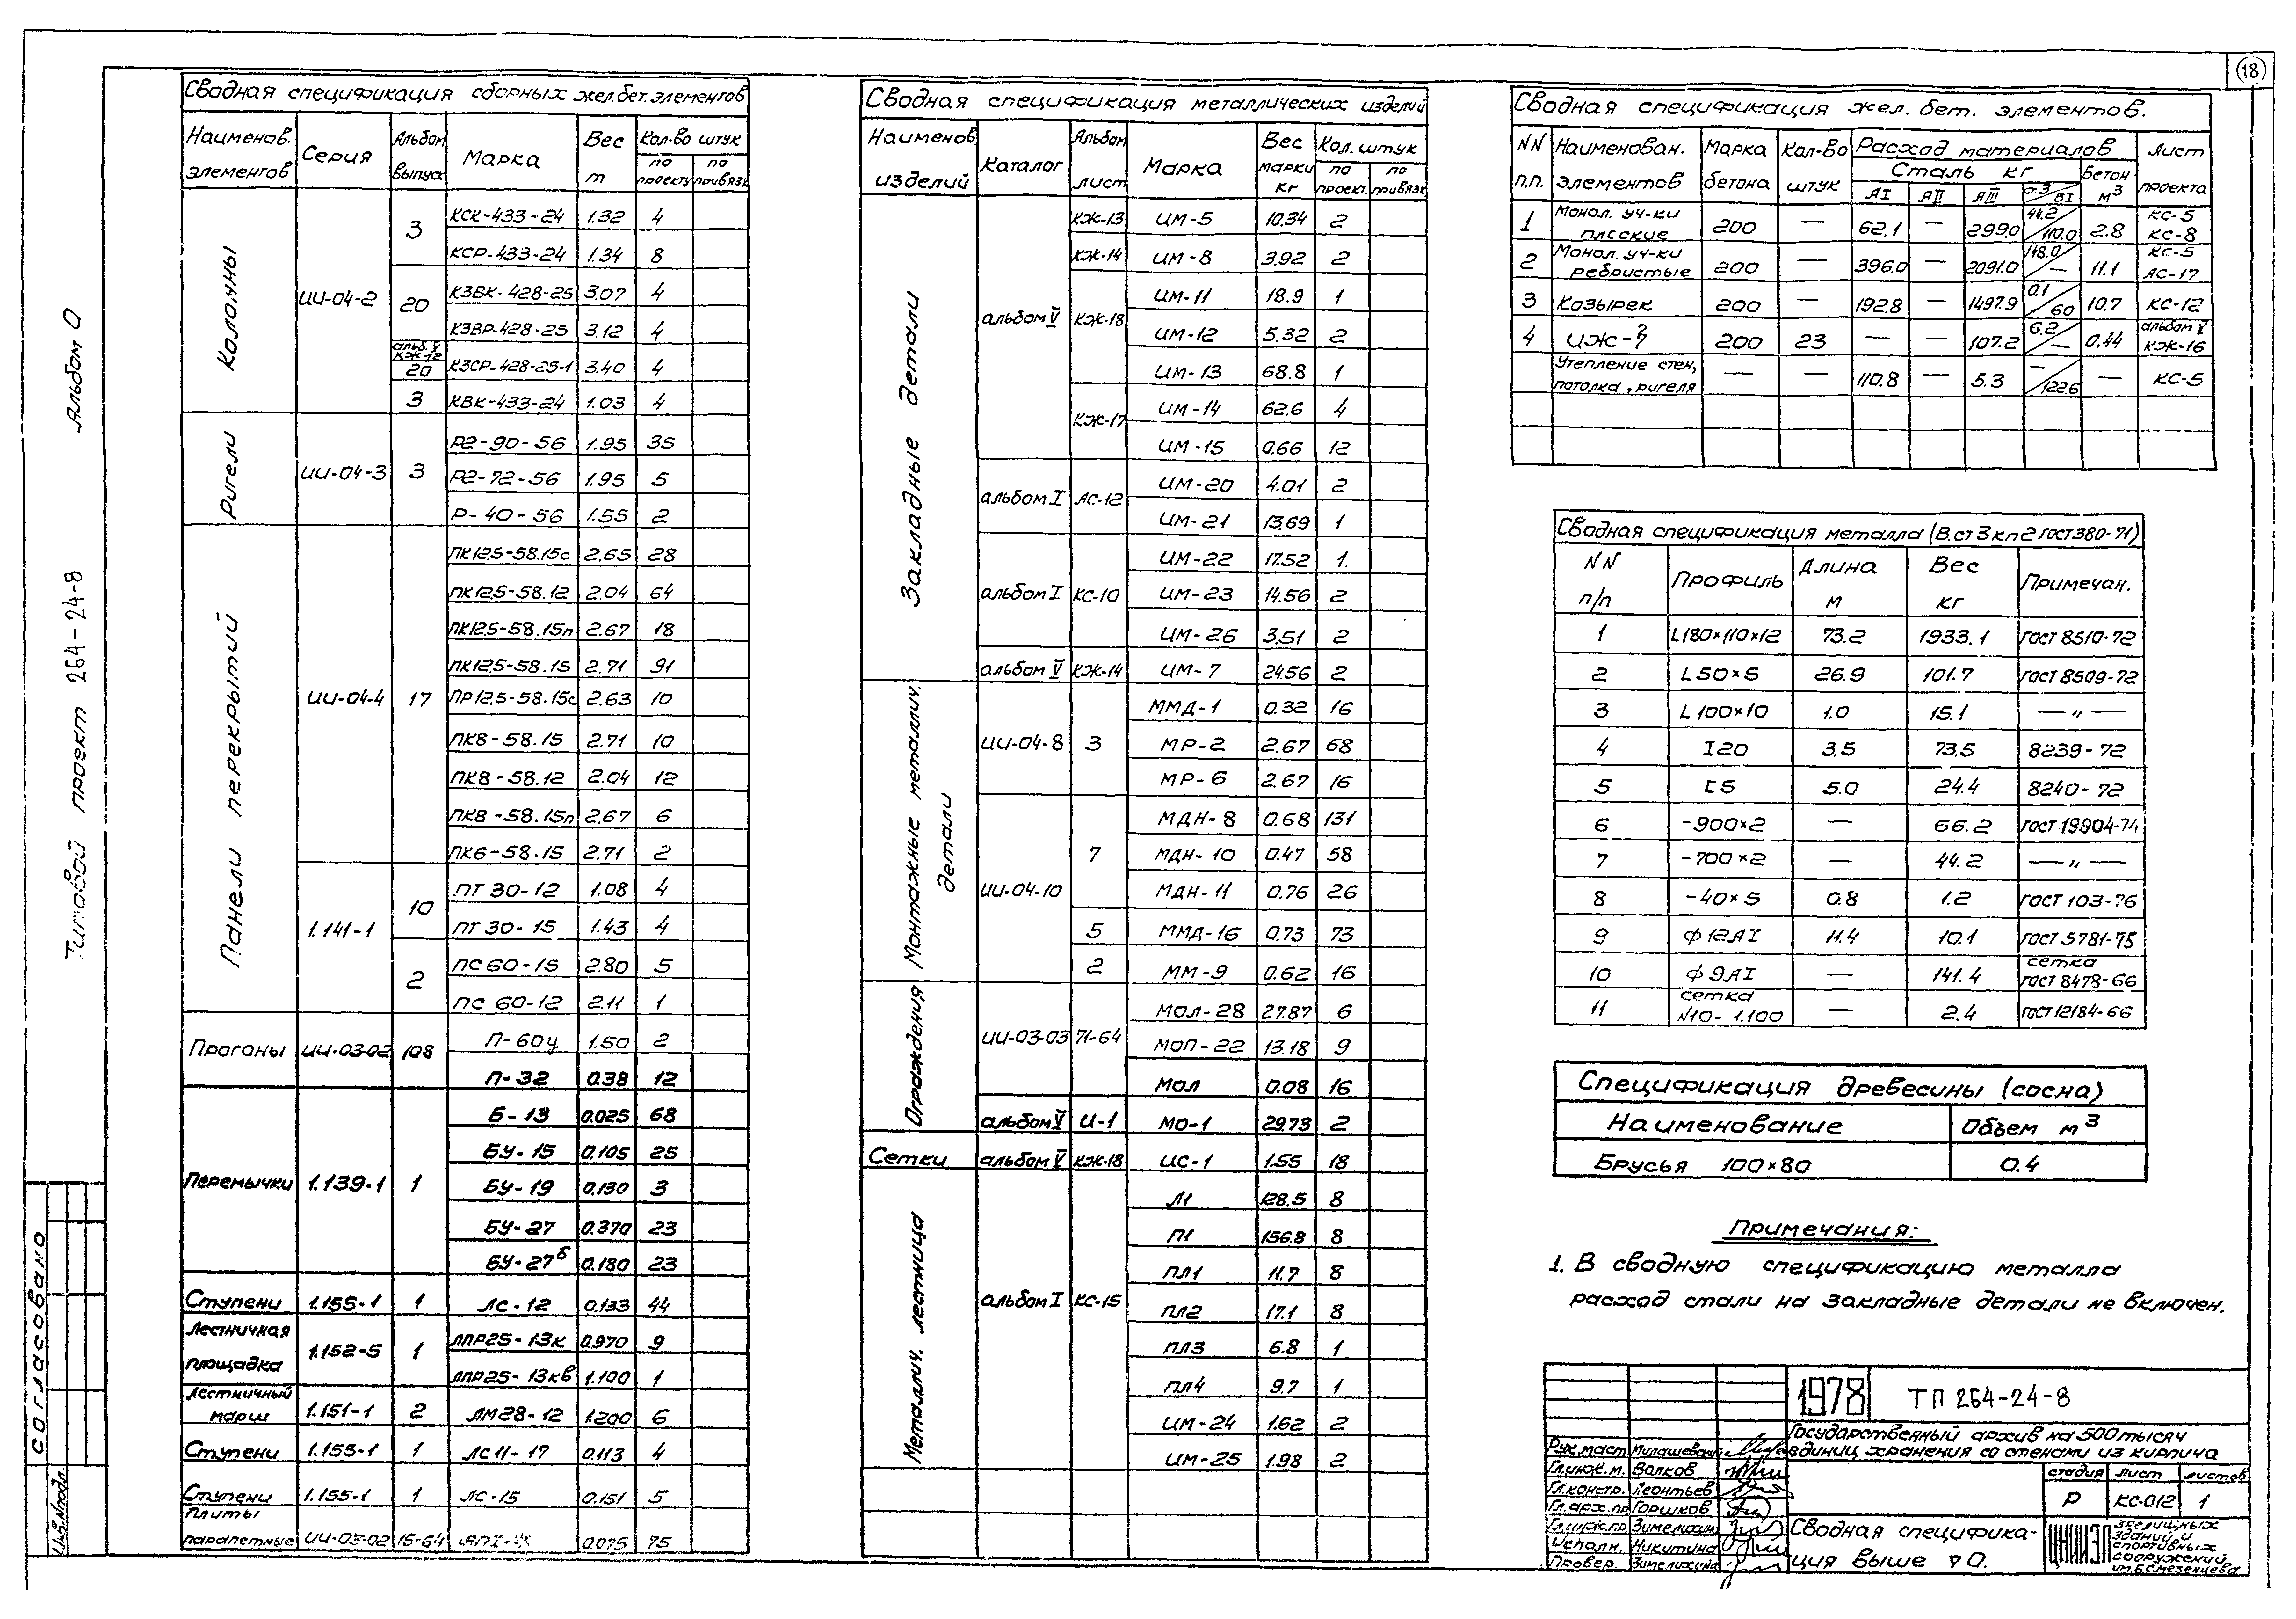 18
Альбом 0
Типовой проект 264-24-8
Согласовано
Инв.№подл.
Сводная спецификация сборных жел.бет.элементов
Наименов. элементов Серия Альбом выпуск Марка Вес т Кол-во штук
по проекту по привязк
Колонны ИИ-04-2 3 КСК-433-24 1.32 4
КСР-433-24 1.34 8
20 КЗВК-428-25 3.07 4
КЗВР-428-25 3.12 4
альб. V КЖ-12 20 КЗСР-428-25-1 3.40 4
3 КВК-433-24 1.03 4
Ригели ИИ-04-3 3 Р2-90-56 1.95 35
Р2-72-56 1.95 5
Р-40-56 1.55 2
Панели перекрытий ИИ-04-4 17 ПК12.5-58.15с 2.65 28
ПК12.5-58.12 2.04 64
ПК12.5-58.15п 2.67 18
ПК12.5-58.15 2.71 91
ПР12.5-58.15с 2.63 10
ПК8-58.15 2.71 10
ПК8-58.12 2.04 12
ПК8-58.15п 2.67 6
ПК6-58.15 2.71 2
1.141-1 10 ПТ 30-12 1.08 4
ПТ 30-15 1.43 4
2 ПС 60-15 2.80 5
ПС 60-12 2.11 1
Прогоны ИИ-03-02 108 П-60у 1.50 2
П-32 0.38 12
Перемычки 1.139-1 1 Б-13 0.025 68
БУ-15 0.105 25
БУ-19 0.130 3
БУ-27 0.370 23
БУ-27б 0.180 23
Ступени 1.155-1 1 ЛС-12 0.133 44
Лестничная площадка 1.152-5 1 ЛПР25-13к 0.970 9
ЛПР25-13кв 1.100 1
Лестничный марш 1.151-1 2 ЛМ28-12 1.200 6
Ступени 1.155-1 1 ЛС11-17 0.113 4
Ступени 1.155-1 1 ЛС-15 0.151 5
Плиты парапетные ИИ-03-02 15-64 0.075 75
Сводная спецификация металлических изделий
Наименов изделий Каталог Альбом лист Марка Вес марки кг Кол. штук
по проект. по привязк
Закладные детали альбом V КЖ-13 ИМ-5 10.34 2
КЖ-14 ИМ-8 3.92 2
КЖ-18 ИМ-11 18.9 1
ИМ-12 5.32 2
ИМ-13 68.8 1
КЖ-17 ИМ-14 62.6 4
ИМ-15 0.66 12
альбом I АС-12 ИМ-20 4.01 2
ИМ-21 13.69 1
альбом I КС-10 ИМ-22 17.52 1.
ИМ-23 14.56 2
ИМ-26 3.51 2
альбом V КЖ-14 ИМ-7 24.56 2
Монтажные металлич. детали ИИ-04-8 3 ММД-1 0.32 16
МР-2 2.67 68
МР-6 2.67 16
ИИ-04-10 7 МДН-8 0.68 131
МДН-10 0.47 58
МДН-11 0.76 26
5 ММД-16 0.73 73
2 ММ-9 0.62 16
Ограждения ИИ-03-03 71-64 МОЛ-28 27.87 6
МОП-22 13.18 9
МОЛ 0.08 16
альбом V И-1 МО-1 29.73 2
Сетки альбом V КЖ-18 ИС-1 1.55 18
Металлич. лестница альбом I КС-15 Л1 128.5 8
П1 156.8 8
ПЛ1 11.7 8
ПЛ2 17.1 8
ПЛ3 6.8 1
ПЛ4 9.7 1
ИМ-24 1.62 2
ИМ-25 1.98 2
Сводная спецификация жел. бет. элементов.
NN п.п. Наименован. элементов Марка бетона Кол-во штук Расход материалов Лист проекта
Сталь кг Бетон м3
АI АII АIII ст.3/ВI
1 Монол. уч-ки плоские 200 — 62.1 — 299.0 44.2/110.0 2.8 КС-5 КС-8
2 Монол. уч-ки ребристые 200 — 396.0 — 2091.0 148.0/— 11.1 КС-5 АС-17
3 Козырек 200 — 192.8 — 1497.9 0.1/60 10.7 КС-12
4 ИЖ-7 200 23 — — 107.2 6.2/— 0.44 альбом V КЖ-16
Утепление стен, потолка, ригеля — — 110.8 — 5.3 —/122.6 — КС-5
Сводная спецификация металла (В.ст3кп2 ГОСТ380-71)
NN п/п Профиль Длина м Вес кг Примечан.
1 L180×110×12 73.2 1933.1 ГОСТ 8510-72
2 L50×5 26.9 101.7 ГОСТ 8509-72
3 L100×10 1.0 15.1 — " —
4 I20 3.5 73.5 8239-72
5 [5 5.0 24.4 8240-72
6 -900×2 — 66.2 ГОСТ 19904-74
7 -700×2 — 44.2 — " —
8 -40×5 0.8 1.2 ГОСТ 103-76
9 Ф12АI 11.4 10.1 ГОСТ 5781-75
10 Ф9АI — 141.4 сетка ГОСТ 8478-66
11 сетка N10-1.100 — 2.4 ГОСТ12184-66
Спецификация древесины (сосна)
Наименование Объем м3
Брусья 100×80 0.4
Примечания:
1. В сводную спецификацию металла
расход стали на закладные детали не включен.
1978 ТП 264-24-8
Государственный архив на 500 тысяч
единиц хранения со стенами из кирпича
Рук.маст. Милашевский
Гл.инж.м. Волков
Гл.констр. Леонтьев
Гл.арх.пр Горшков
Гл.инж.пр. Зимелихин
Исполн. Никитина
Провер. Зимелихина
стадия лист листов
Р КС-012 1
Сводная специфика-
ция выше ▽ 0.
ЦНИИЭП
зрелищных
зданий и
спортивных
сооружений
им.Б.С.Мезенцева